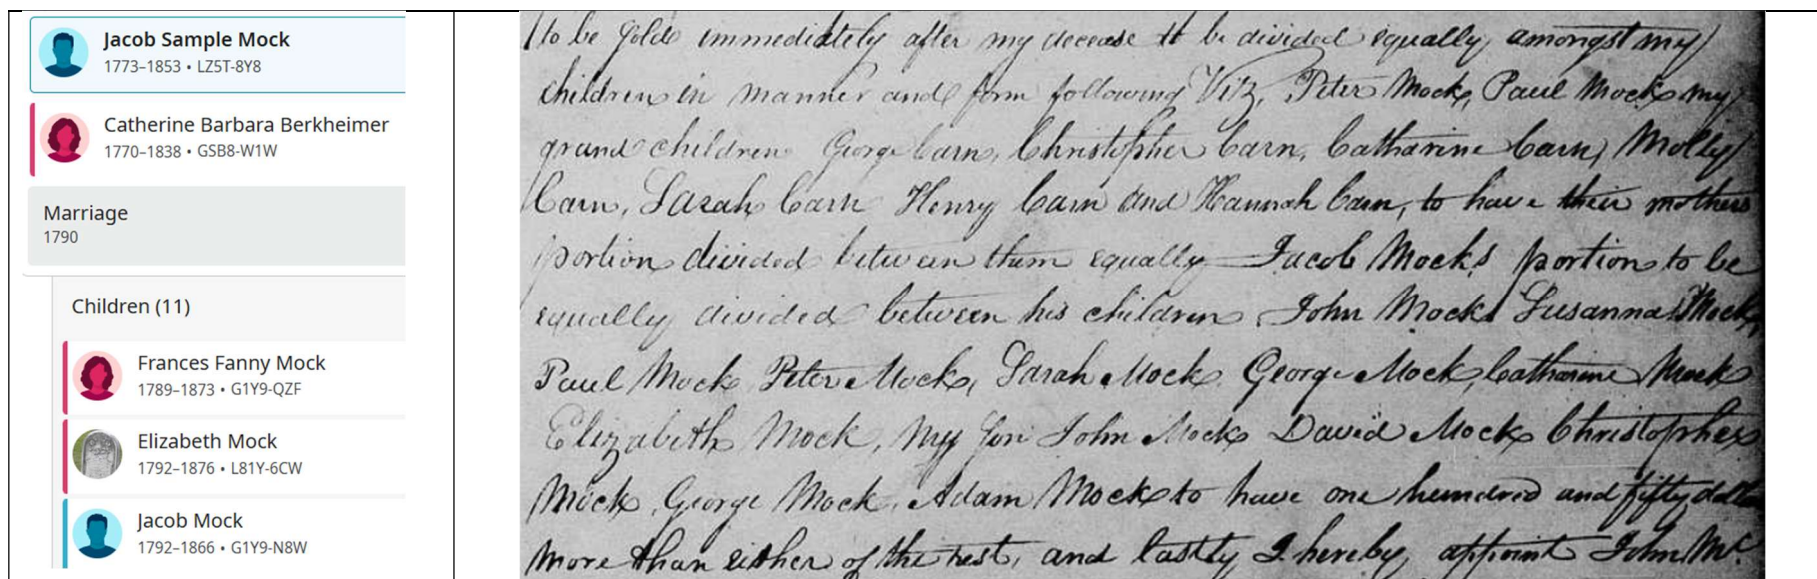 Jacob Sample Mock
1773–1853 • LZ5T-8Y8
Catherine Barbara Berkheimer
1770–1838 • GSB8-W1W
Marriage
1790
Children (11)
Frances Fanny Mock
1789–1873 • G1Y9-QZF
Elizabeth Mock
1792–1876 • L81Y-6CW
Jacob Mock
1792–1866 • G1Y9-N8W
to be Sold immediately after my decease to be divided equally amongst my
children in manner and form following Viz, Peter Mock, Paul Mock my
grand children George Carn, Christopher Carn, Catharine Carn, Molly
Carn, Sarah Carn Henry Carn and Hannah Carn, to have their mothers
portion divided between them equally Jacob Mocks portion to be
equally divided between his children John Mock Susanna Mock,
Paul Mock Peter Mock, Sarah Mock George Mock, Catharine Mock
Elizabeth Mock, My Son John Mock David Mock Christopher
Mock, George Mock, Adam Mock to have one hundred and fifty
more than either of the rest, and lastly I hereby appoint John Mc